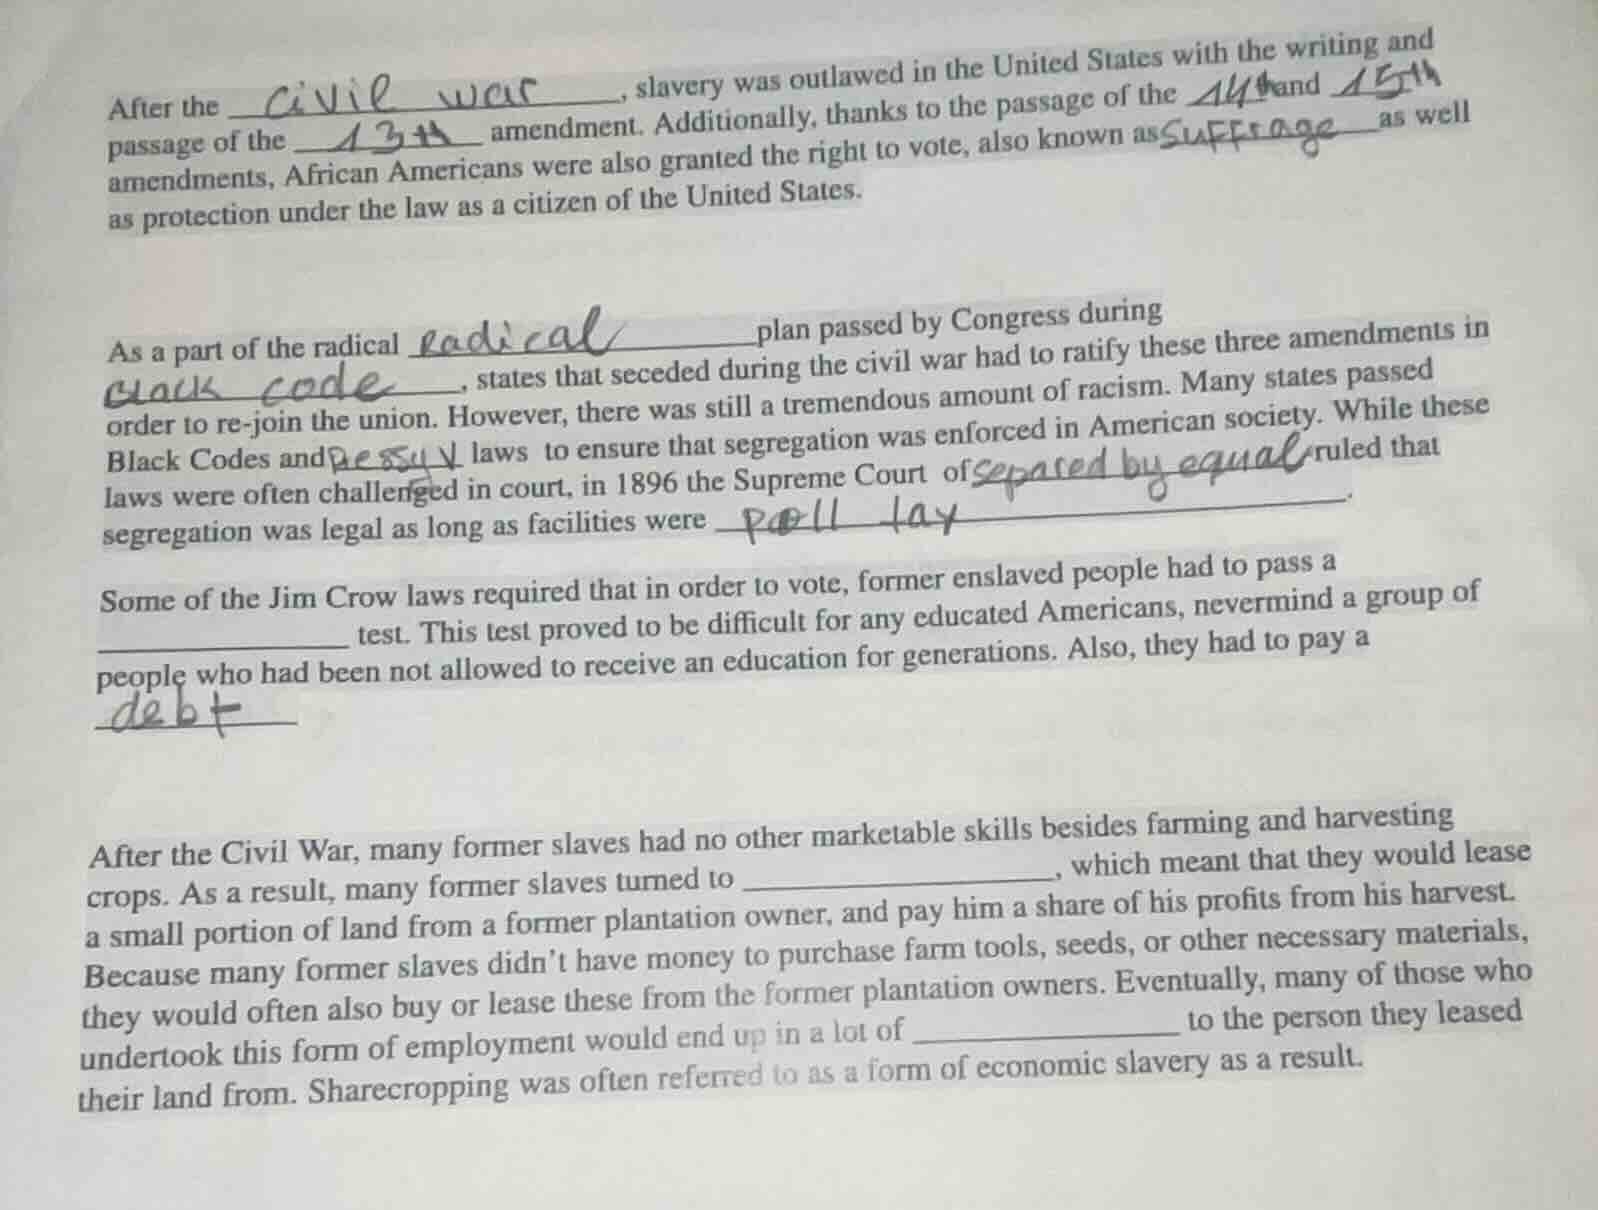 After the civil war, slavery was outlawed in the United States with the writing and
passage of the 13th amendment. Additionally, thanks to the passage of the 14th and 15th
amendments, African Americans were also granted the right to vote, also known as Suffrage as well
as protection under the law as a citizen of the United States.
As a part of the radical Radical plan passed by Congress during
Black code, states that seceded during the civil war had to ratify these three amendments in
order to re-join the union. However, there was still a tremendous amount of racism. Many states passed
Black Codes and Plessy V laws to ensure that segregation was enforced in American society. While these
laws were often challenged in court, in 1896 the Supreme Court of separed by equal ruled that
segregation was legal as long as facilities were poll tax.
Some of the Jim Crow laws required that in order to vote, former enslaved people had to pass a
test. This test proved to be difficult for any educated Americans, nevermind a group of
people who had been not allowed to receive an education for generations. Also, they had to pay a
debt
After the Civil War, many former slaves had no other marketable skills besides farming and harvesting
crops. As a result, many former slaves turned to , which meant that they would lease
a small portion of land from a former plantation owner, and pay him a share of his profits from his harvest.
Because many former slaves didn't have money to purchase farm tools, seeds, or other necessary materials,
they would often also buy or lease these from the former plantation owners. Eventually, many of those who
undertook this form of employment would end up in a lot of to the person they leased
their land from. Sharecropping was often referred to as a form of economic slavery as a result.